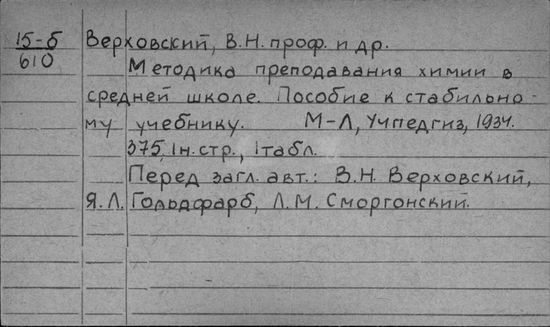 15-б
610
Верховский, В.Н. проф. и др.
Методика преподавания химии в
средней школе. Пособие к стабильно-
му учебнику. М-Л, Учпедгиз, 1934.
375, 1н.стр., 1табл.
Перед загл. авт.: В.Н. Верховский,
Я.Л. Гольдфарб, Л.М. Сморгонский.